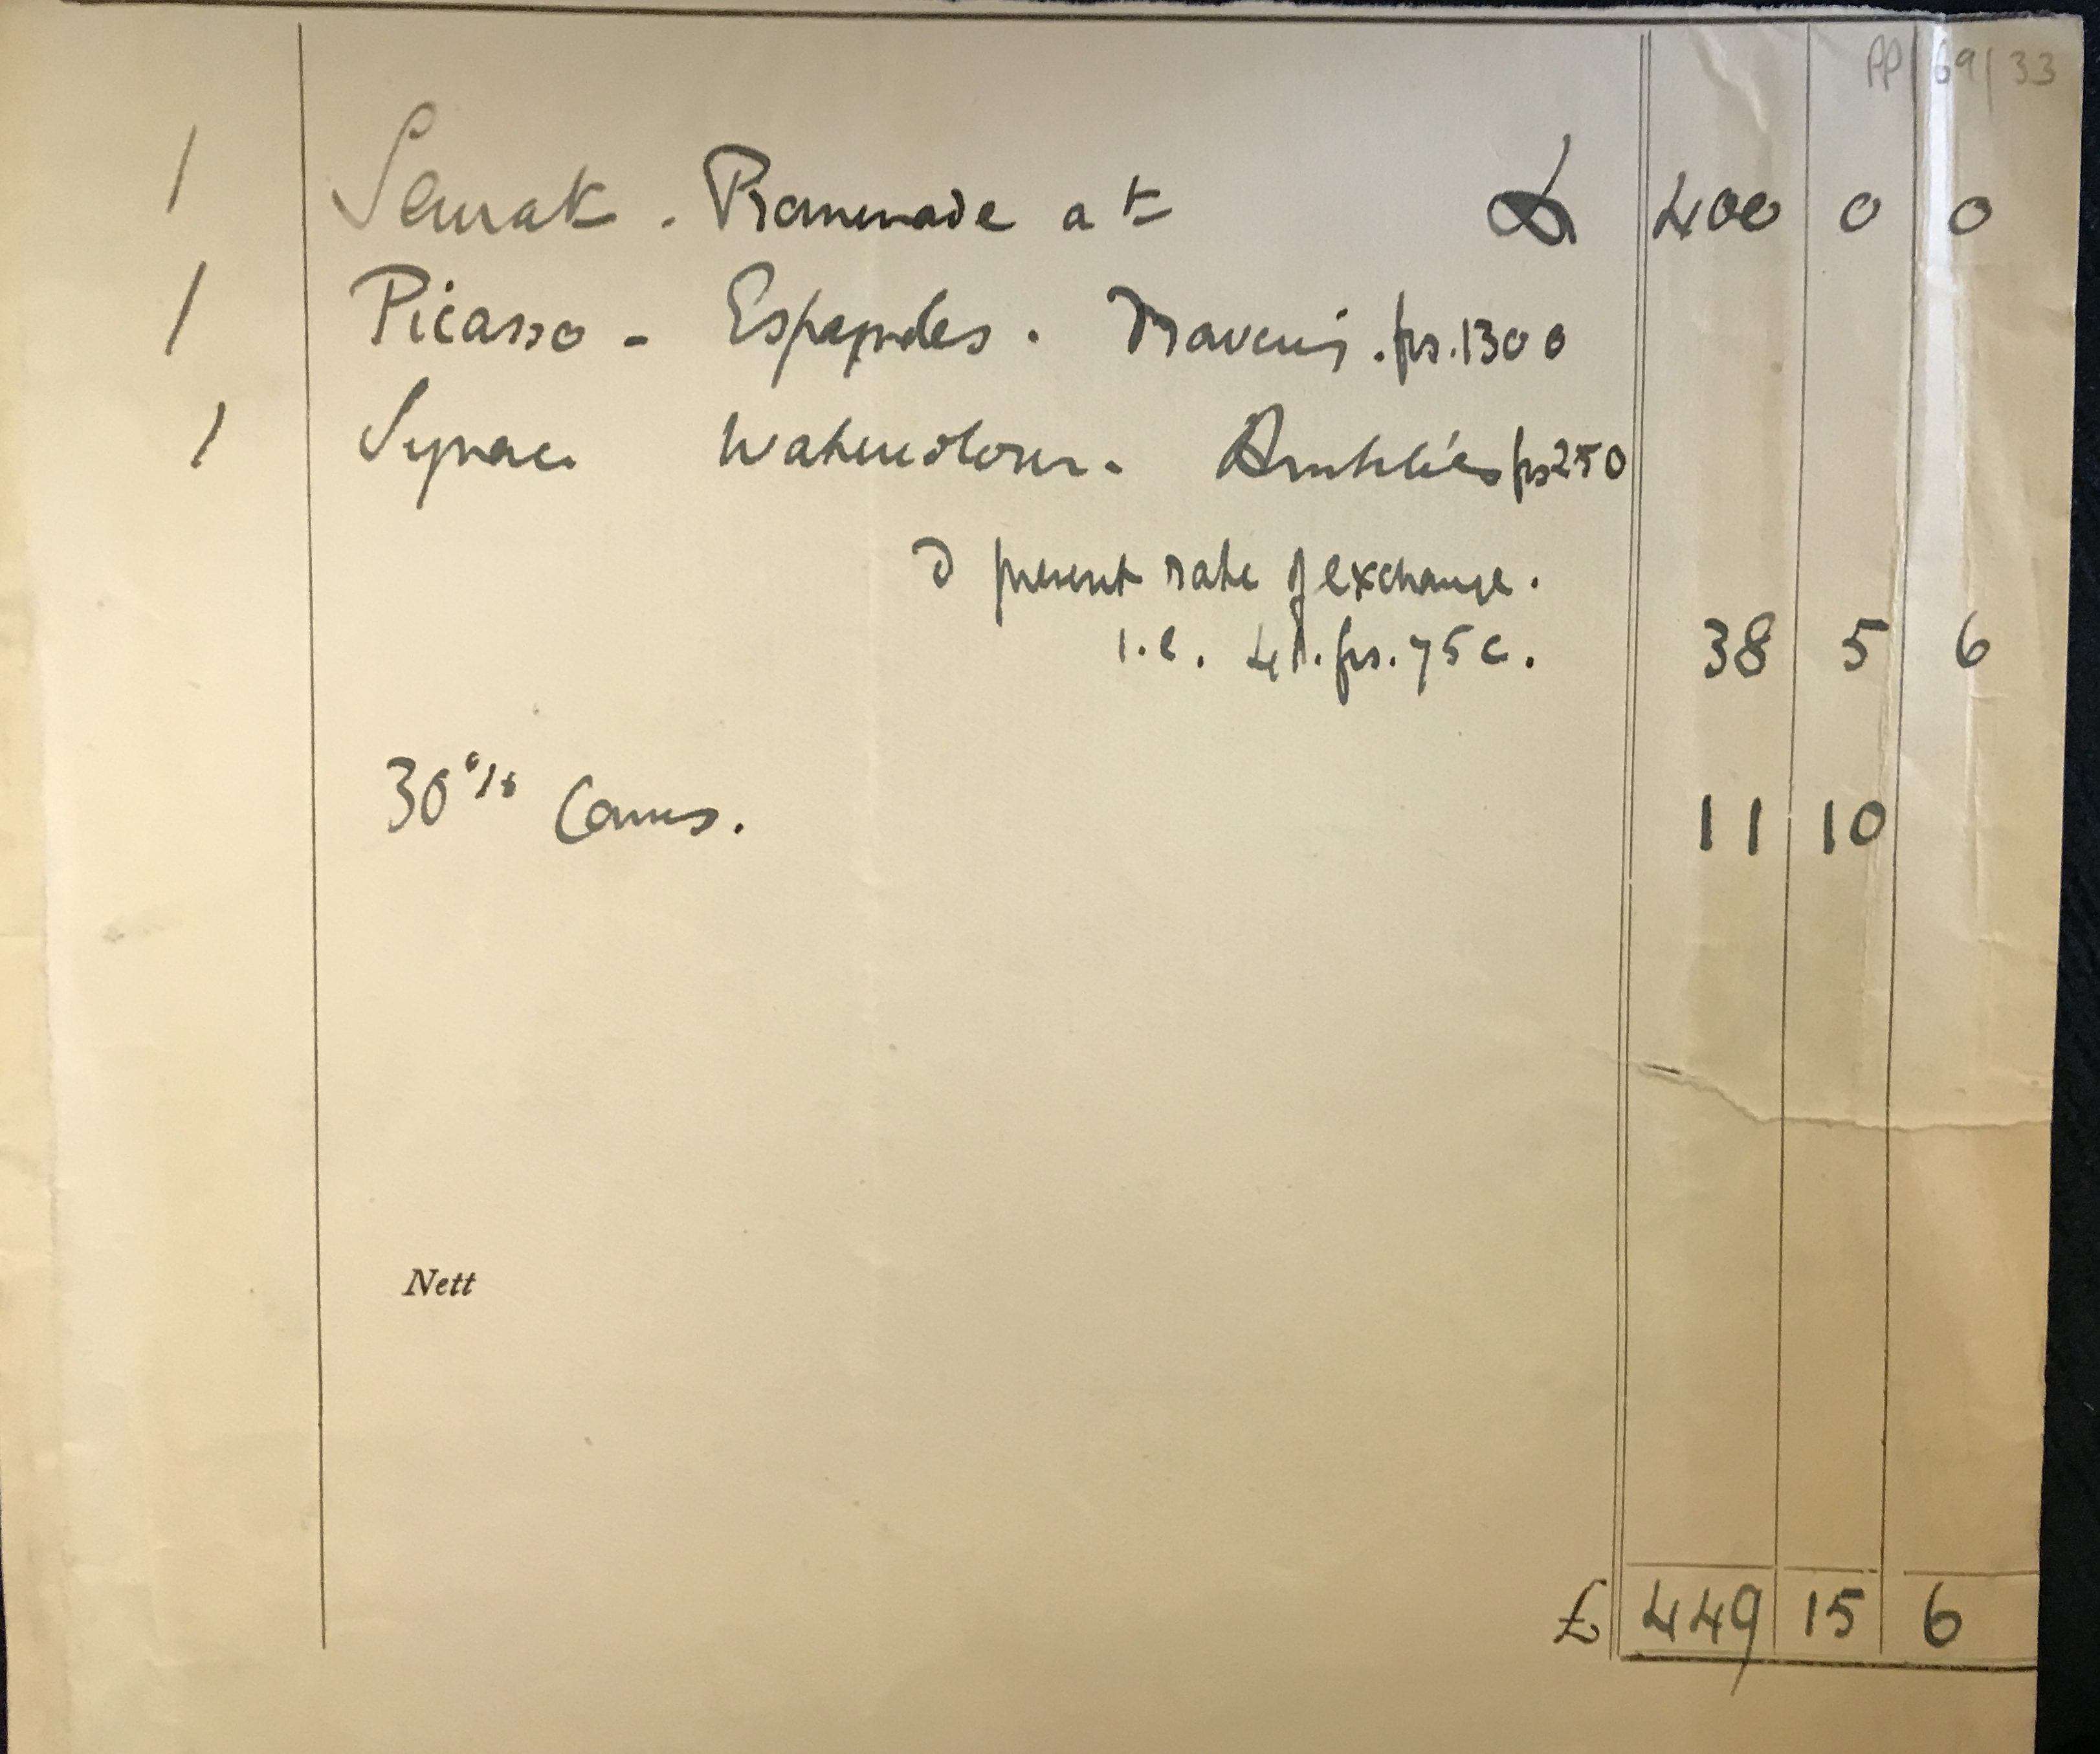 PP/69/33
1 Seurat. Promenade at £ 400 0 0
1 Picasso - Espagnoles. frs. 1300
1 Signac Watercolour. Antibes frs 250
@ present rate of exchange.
i.e. frs. 75 c. 38 5 6
30% Coms. 11 10
Nett
£ 449 15 6